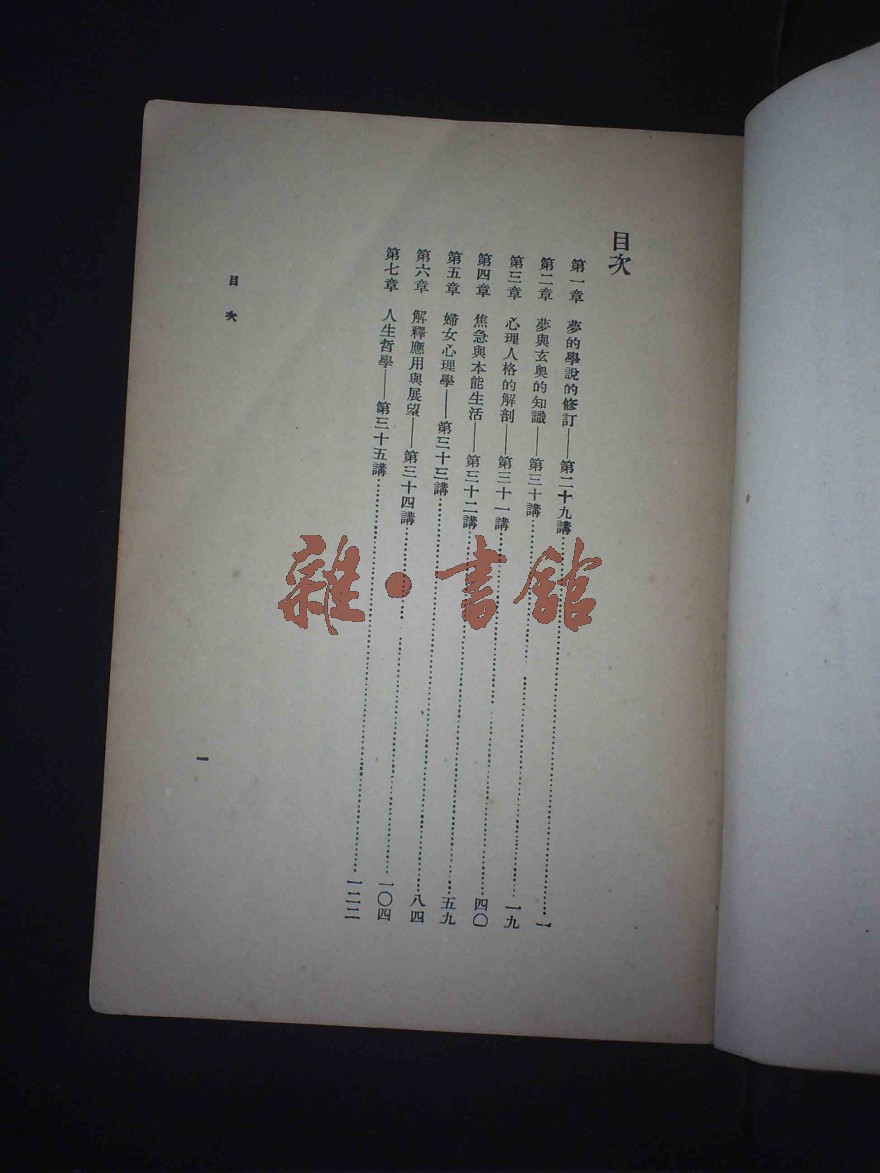 目次
第一章　夢的學說的修訂——第二十九講……一
第二章　夢與玄奥的知識——第三十講……一九
第三章　心理人格的解剖——第三十一講……四〇
第四章　焦急與本能生活——第三十二講……五九
第五章　婦女心理學——第三十三講……八四
第六章　解釋應用與展望——第三十四講……一〇四
第七章　人生哲學——第三十五講……一二二
目次
一
雜·書館